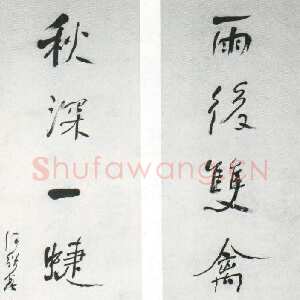 雨後雙禽
秋深一蜨
Shufawang.CN